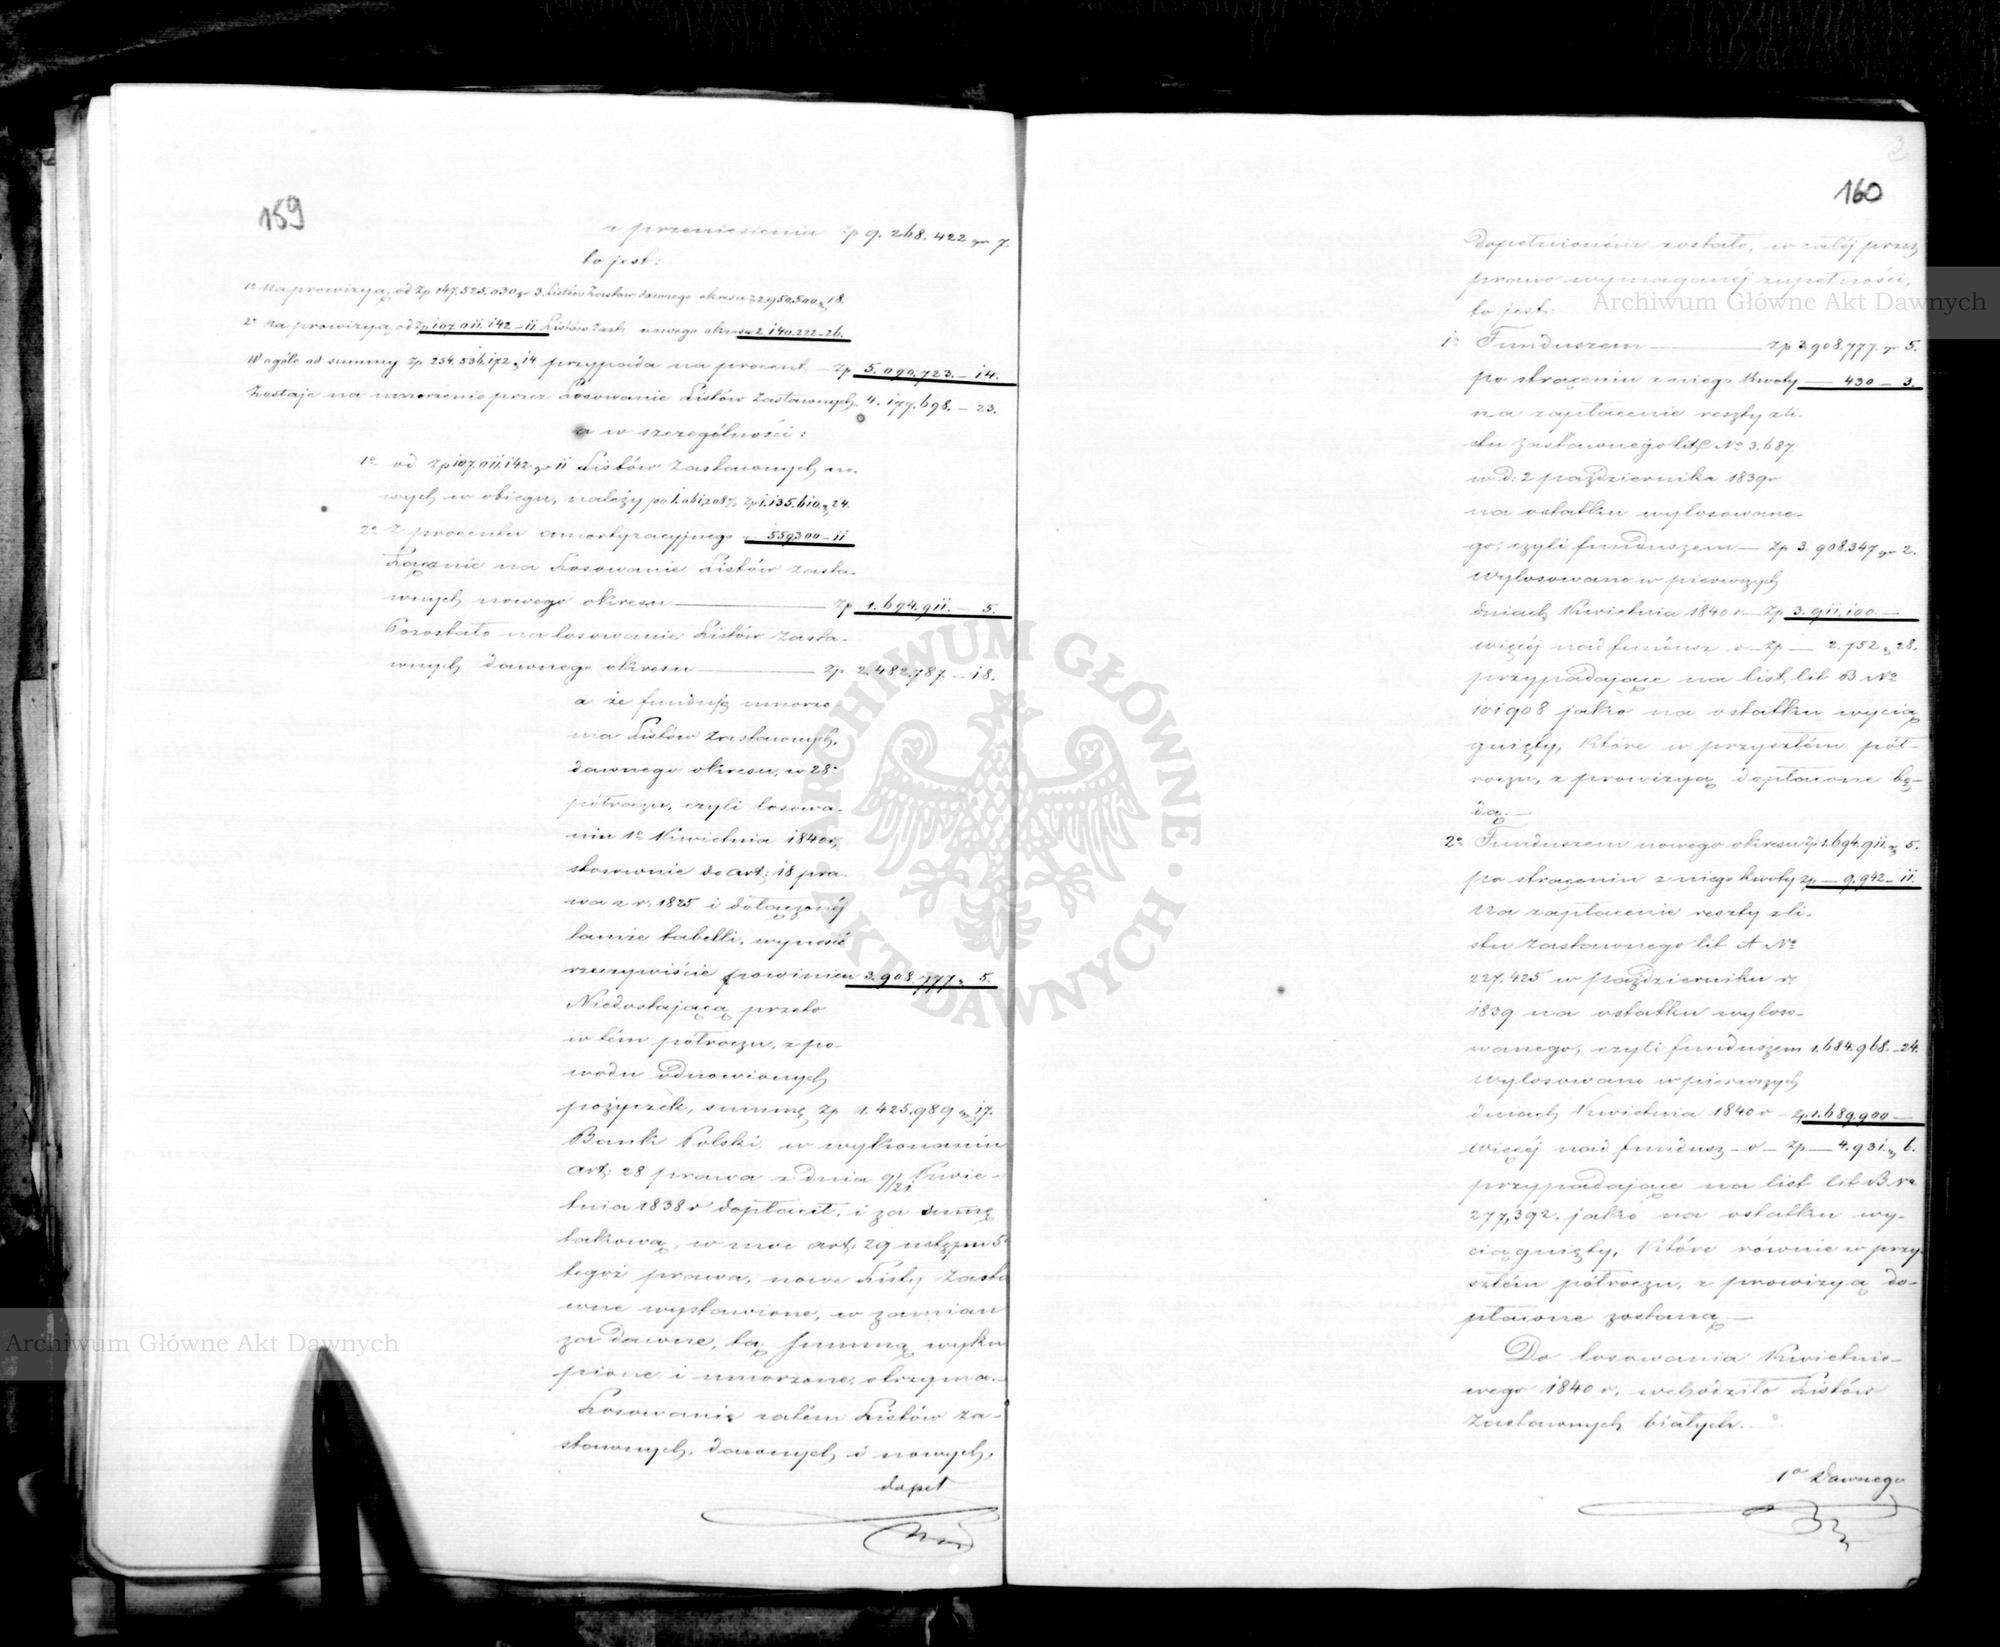 159
z przeniesienia zp 9.268.422 gr 7.
to jest:
1º Na prowizyą od Zp 147.525.030 gr 3. Listów Zastaw: dawnego okresu zp 2.950.500 gr 18.
2º Na prowizyą od Zp 107.011.142 – 11 Listów Zast: nowego okresu 2.140.222 – 26.
W ogóle od summy Zp 254.536.172 gr 14 przypada na procent – Zp 5.090.723. – 14.
Zostaje na umorzenie przez Losowanie Listów Zastawnych – 4.177.698. – 23.
a w szczególności:
1º od Zp 107.011.142 gr 11 Listów Zastawnych no-
wych w obiegu, należy po 1.061208% Zp 1.135.610 gr 24.
2º Z procentu amortyzacyjnego 559300 – 11
Łącznie na Losowanie Listów Zasta-
wnych nowego okresu Zp 1.694.911. – 5.
Pozostało na losowanie Listów Zasta-
wnych dawnego okresu Zp 2.482.787. – 18.
a że fundusz umorze
nia Listów Zastawnych,
dawnego okresu, w 28m
półroczu, czyli losowa-
niu 1º Kwietnia 1840 r,
stosownie do art: 18 pra-
wa z r. 1825 i dołączonéj
tamże tabelli, wynosić
rzeczywiście powinien 3.908.777 gr 5.
Niedostającą przeto
w tém półroczu, z po-
wodu odnowionych
pożyczek, summę Zp 1.425.989 gr 17.
Bank Polski, w wykonaniu
art: 28 prawa z dnia 9/21 Kwie-
tnia 1838 r dopłacił, i za summę
takową, w moc art: 29 ustępu 5º
tegoż prawa, nowe Listy Zasta
wne wystawione, w zamian
za dawne, tą summą wyku
pione i umorzone, otrzyma.–
Losowanie zatém Listów Za-
stawnych, dawnych i nowych,
dopeł
160
dopełnioném zostało, w całéj przez
prawo wymaganéj zupełności,
to jest:
1º Funduszem Zp 3.908.777. gr 5.
po strąceniu z niego Kwoty 430 – 3.
na zapłacenie reszty z li-
stu zastawnego lit C Nº 3.687.
w d: 2 października 1839 r
na ostatku wylosowane-
go, czyli funduszem – Zp 3.908.347 gr 2.
wylosowano w pierwszych
dniach Kwietnia 1840 r – Zp 3.911.100 –
więcéj nad fundusz o – Zp – 2.752 gr 28.
przypadające na list lit B Nº
101908 jako na ostatku wycią
gnięty, które w przyszłém pół-
roczu, z prowizyą dopłacone bę-
dą. –
2º Funduszem nowego okresu Zp 1.694.911 gr 5.
po strąceniu z niego kwoty Zp – 9.942 – 11.
Na zapłacenie reszty z li-
stu Zastawnego lit A Nº
227.425 w październiku r.
1839 na ostatku wyloso-
wanego, czyli funduszem 1.684.968. – 24.
wylosowano w pierwszych
dniach Kwietnia 1840 r – Zp 1.689.900 –
więcéj nad fundusz – o – Zp – 4.931 gr 6.
przypadające na list lit B Nº
277,392. jako na ostatku wy-
ciągnięty, które równie w przy-
szłém półroczu, z prowizyą do-
płacone zostaną. –
Do losowania Kwietnio-
wego 1840 r, wchodziło Listów
Zastawnych białych. –
1º Dawnego
Archiwum Główne Akt Dawnych
Archiwum Główne Akt Dawnych
ARCHIWUM GŁÓWNE AKT DAWNYCH